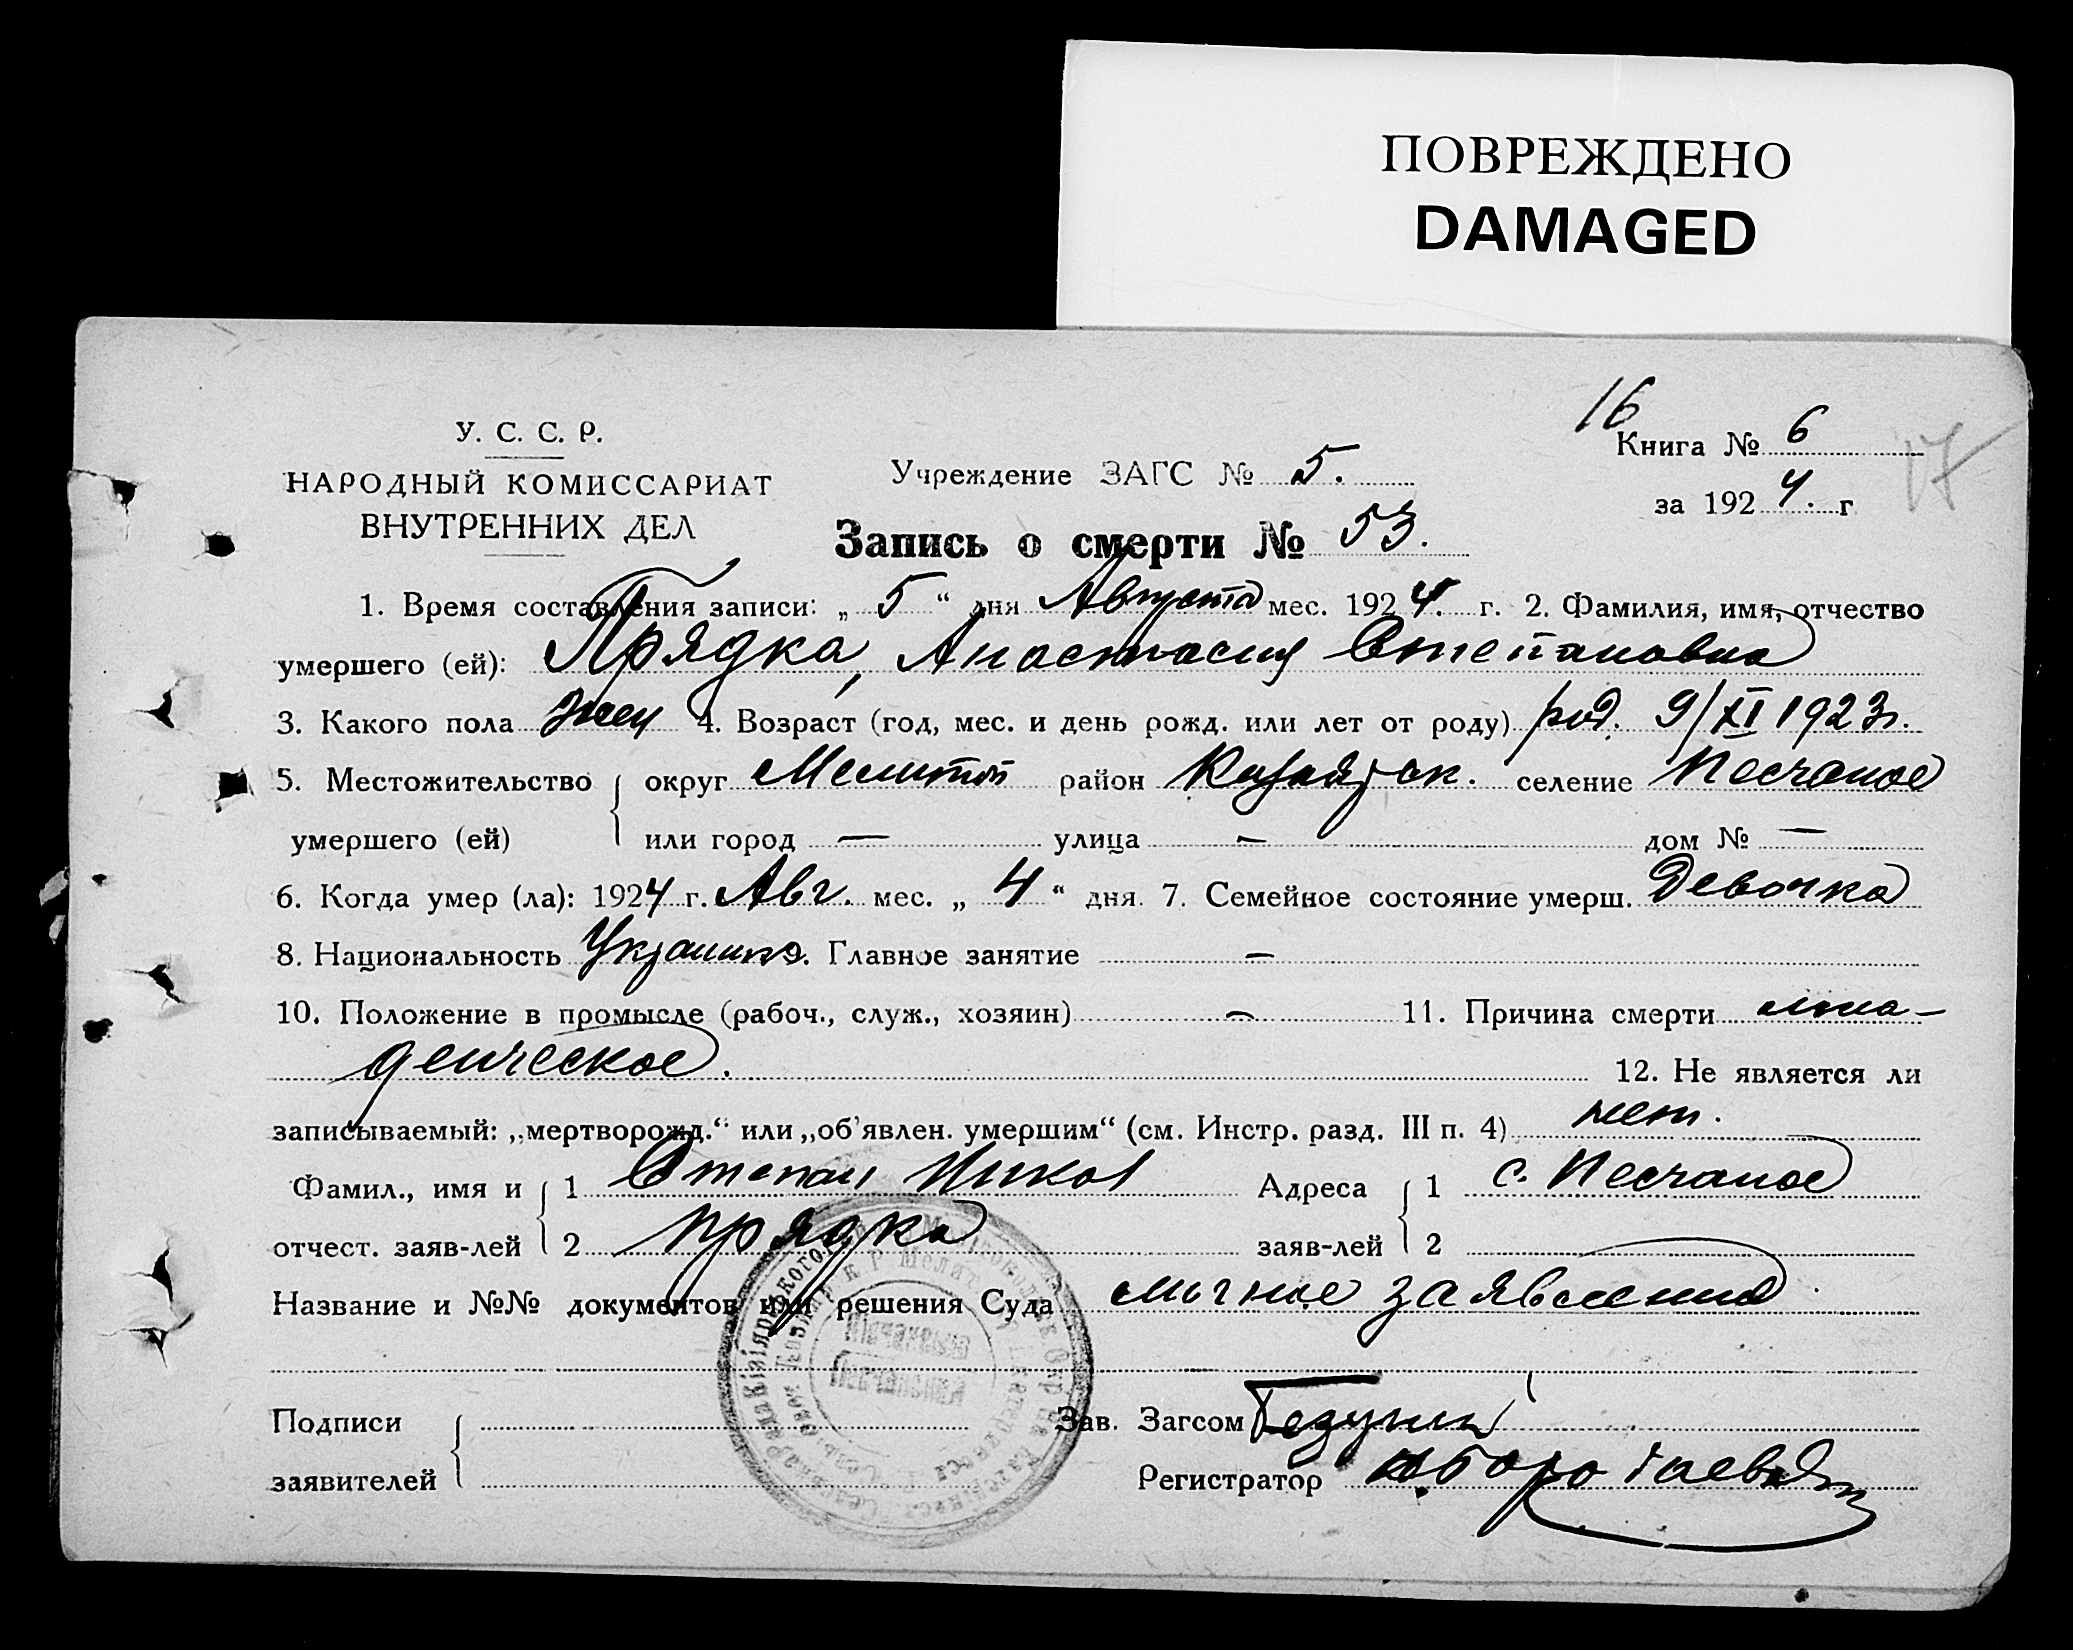 ПОВРЕЖДЕНО
DAMAGED
16
Книга № 6
17
за 1924. г
У. С. С. Р.
НАРОДНЫЙ КОМИССАРИАТ
ВНУТРЕННИХ ДЕЛ
Учреждение ЗАГС № 5.
Запись о смерти № 53.
1. Время составления записи: „ 5 “ дня Августа мес. 1924. г. 2. Фамилия, имя, отчество
умершего (ей): Прядка, Анастасия Степановна
3. Какого пола жен 4. Возраст (год, мес. и день рожд. или лет от роду) род. 9/XI 1923г.
5. Местожительство округ Мелитоп район Кизиярск. селение Песчаное
умершего (ей) или город — улица — дом № —
6. Когда умер (ла): 1924 г. Авг. мес. „ 4 “ дня. 7. Семейное состояние умерш. Девочка
8. Национальность Украинка 9. Главное занятие —
10. Положение в промысле (рабоч., служ., хозяин) — 11. Причина смерти мла-
денческое.
12. Не является ли
записываемый: „мертворожд.“ или „об'явлен. умершим“ (см. Инстр. разд. III п. 4) нет.
Фамил., имя и 1 Степан Никол Адреса 1 с. Песчаное
отчест. заяв-лей 2 Прядка заяв-лей 2
Название и №№ документов или решения Суда личное заявление
Подписи Зав. Загсом
заявителей Регистратор